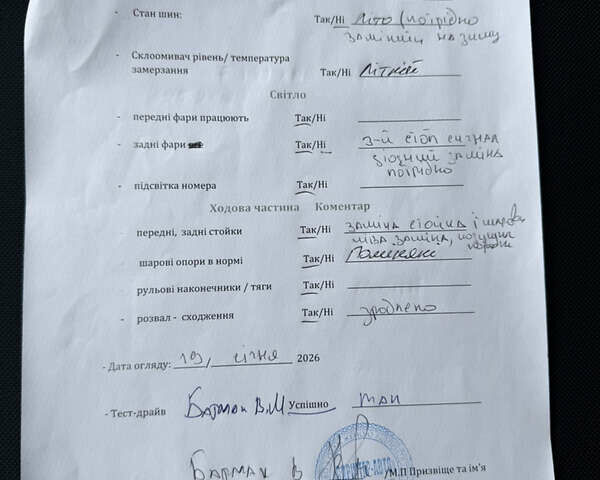 - Стан шин: Так/Ні Літо (потрібно
замінити на зиму
- Склоомивач рівень/ температура
замерзання Так/Ні Літній
Світло
- передні фари працюють Так/Ні
- задні фари Так/Ні 3-й стоп сигнал
заміна
потрібно
- підсвітка номера Так/Ні
Ходова частина Коментар
- передні, задні стойки Так/Ні заміна стойка і шарова
ліва заміна,
шарові опори в нормі Так/Ні Поміняні
- рульові наконечники / тяги Так/Ні
- розвал - сходження Так/Ні зроблено
- Дата огляду: 19, січня 2026
- Тест-драйв Бармак В.М Успішно так
Бармак В /М.П Призвіще та ім'я